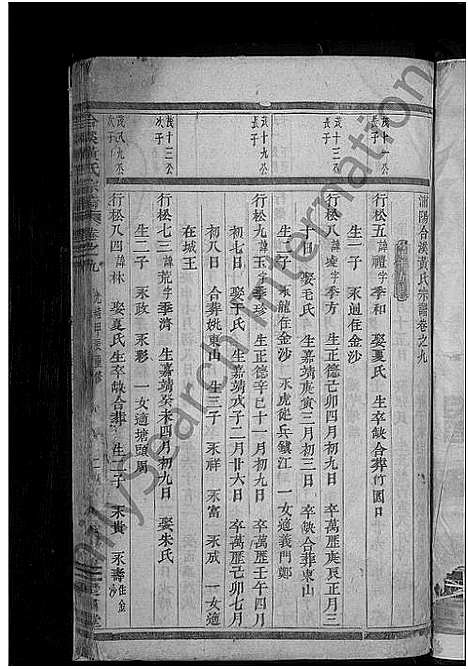 浦陽合溪黃氏宗譜卷之九
茂十一公長子
行松五 諱禮 字季和 娶夏氏 生卒缺合葬竹園口
生一子 永迥任金沙
茂十三公長子
行松八 諱 字季方 生正德己卯四月初九日 卒萬歷庚辰正月三
十日 娶毛氏 生嘉靖庚寅三月初三日 卒缺合葬東山
生二子 永龍任金沙 永虎 兵鎮江 一女適義門鄭
茂十九公長子
行松九 諱玉 字季珍 生正德辛巳十一月初九日 卒萬歷壬午四月
初七日 娶于氏 生嘉靖戊子二月廿六日 卒萬歷己卯七月
初八日 合葬姚東山 生三子 永祥 永富 永成 一女適
在城王
茂十三公次子
行松七三 諱荒 字季濟 生嘉靖癸未四月初九日 娶朱氏
生二子 永政 永彩 一女適塘頭周
茂八九公次子
行松八四 諱林 娶夏氏 生卒缺合葬 生二子 永貴 永壽任金沙
合溪黃氏宗譜 卷之九
FamilySearch International